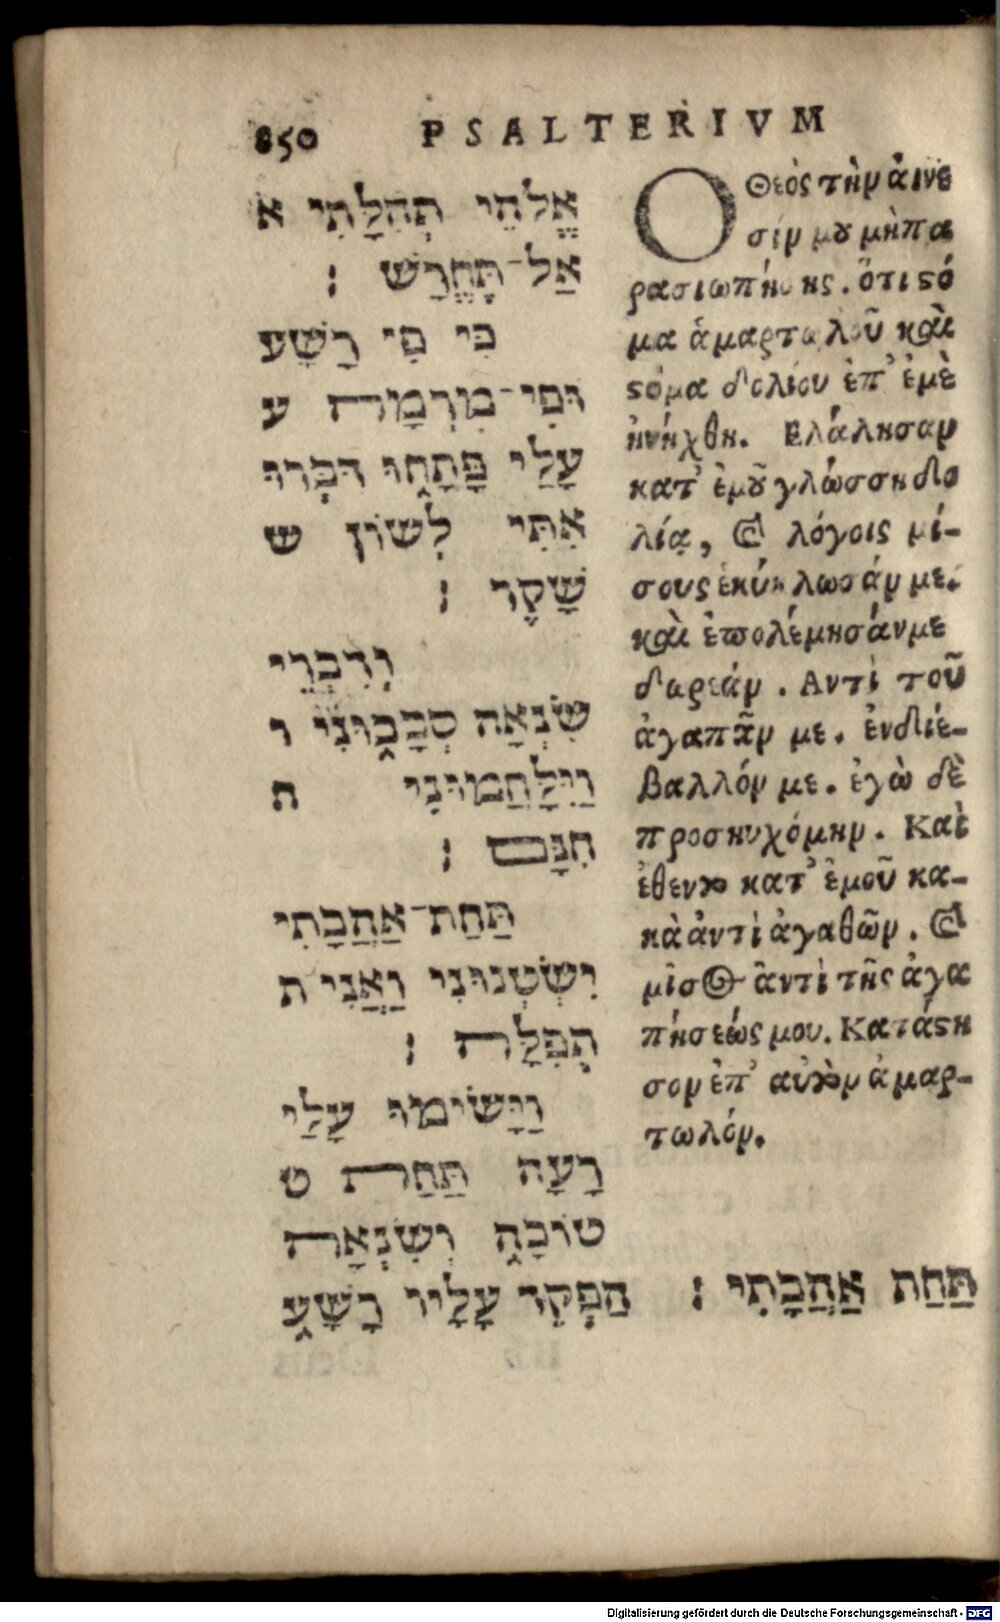 850 PSALTERIVM
אֱלֹהֵי תְהִלָּתִי א
אַל־תֶּחֱרַשׁ :
כִּי פִי רָשָׁע
וּפִי־מִרְמָה ע
עָלַי פָּתָחוּ דִּבְּרוּ
אִתִּי לְשׁוֹן ש
שָׁקֶר :
וְדִבְרֵי
שִׂנְאָה סְבָבוּנִי ו
וַיִּלָּחֲמוּנִי ח
חִנָּם :
תַּחַת־אַהֲבָתִי
יִשְׂטְנוּנִי וַאֲנִי ת
תְפִלָּה :
וַיָּשִׂימוּ עָלַי
רָעָה תַּחַת ט
טוֹבָה וְשִׂנְאָה
תַּחַת אַהֲבָתִי : הַפְקֵד עָלָיו רָשָׁע
Ο Θεὸς τὴν ἀινε
σίν μου μὴ πα
ρασιωπήσης. ὅτι ϛό
μα ἁμαρτωλοῦ καὶ
ϛόμα δολίου ἐπ' ἐμὲ
ἠνήχθη. Ελάλησαν
κατ' ἐμοῦ γλώσση δο
λίᾳ, καὶ λόγοις μί-
σους ἐκύκλωσάν με.
καὶ ἐπολέμησάν με
δωρεάν. Αντὶ τοῦ
ἀγαπᾶν με. ἐνδιέ-
βαλλόν με. ἐγὼ δὲ
προσηυχόμην. Καὶ
ἔθεντο κατ' ἐμοῦ κα-
κὰ ἀντὶ ἀγαθῶν. καὶ
μῖσος ἀντὶ τῆς ἀγα
πήσεώς μου. Κατάϛη
σον ἐπ' αὐτὸν ἁμαρ-
τωλόν.
Digitalisierung gefördert durch die Deutsche Forschungsgemeinschaft - DFG